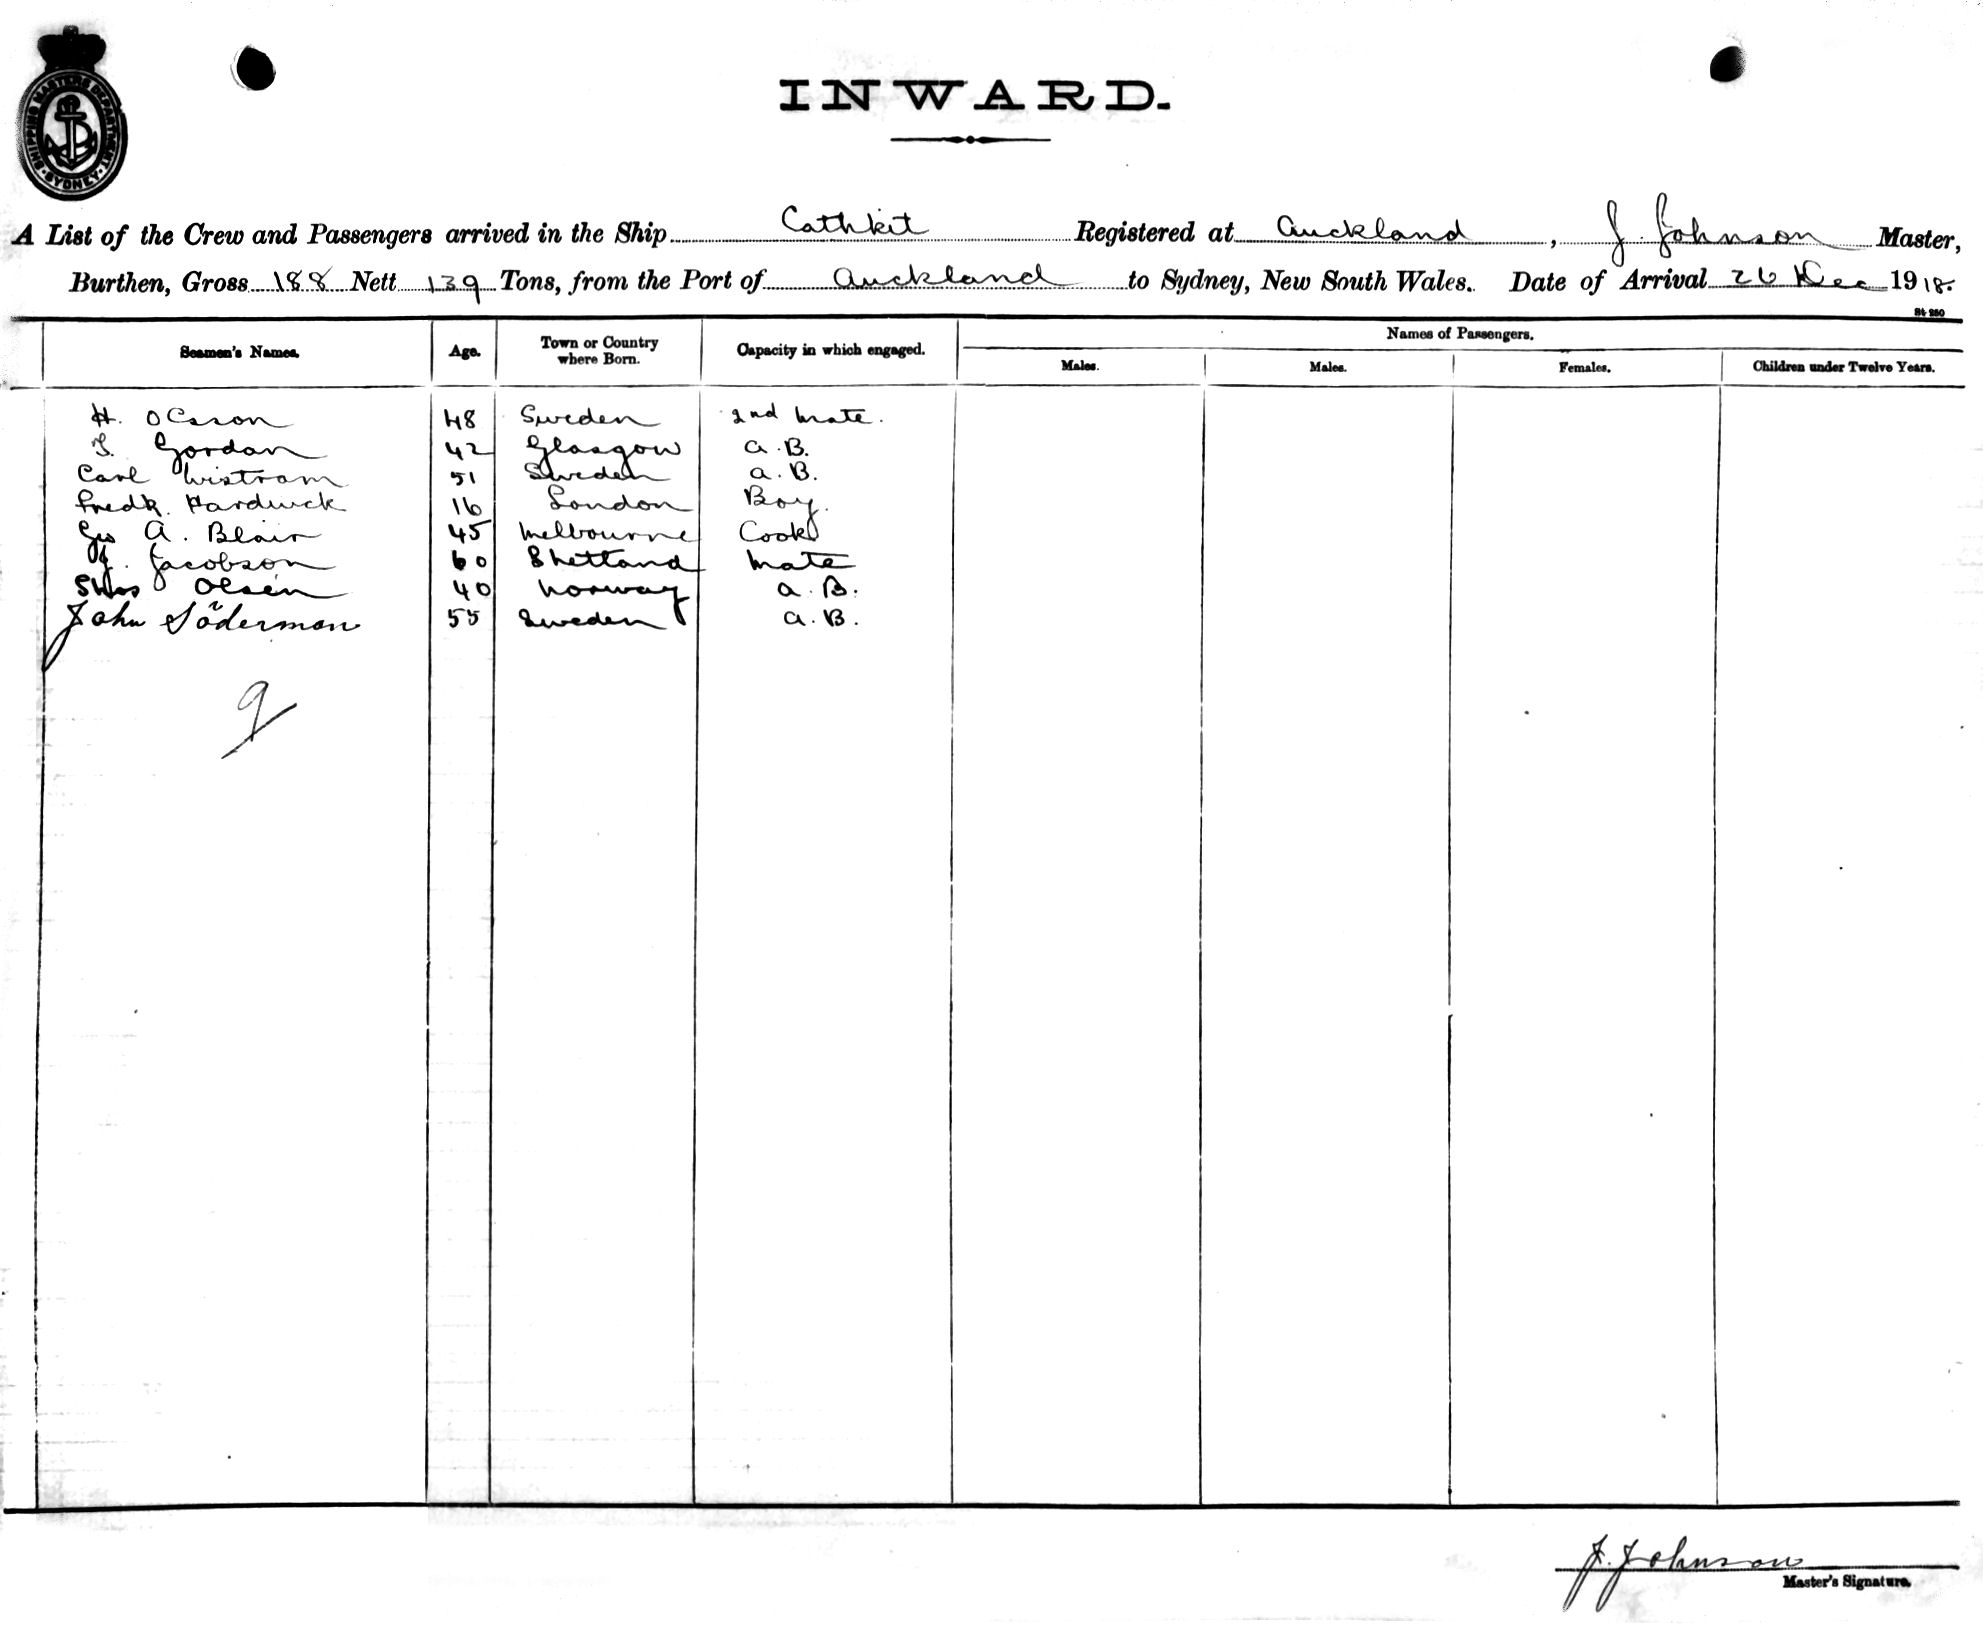 SHIPPING MASTERS DEPARTMENT
SYDNEY
INWARD.
A List of the Crew and Passengers arrived in the Ship Cathkit Registered at Auckland, J. Johnson Master,
Burthen, Gross 188 Nett 139 Tons, from the Port of Auckland to Sydney, New South Wales. Date of Arrival 26 Dec 1918.
St 280
Names of Passengers.
Seamen's Names. Age. Town or Country where Born. Capacity in which engaged. Males. Males. Females. Children under Twelve Years.
H. Olsson 48 Sweden 2nd Mate.
Gordan 42 Glasgow A.B.
Carl Wistram 51 Sweden A.B.
Fredk. Hardwick 16 London Boy.
Geo A. Blair 45 Melbourne Cook
J. Jacobson 60 Shetland Mate
Olsen 40 Norway A.B.
John Söderman 55 Sweden A.B.
9
J. Johnson
Master's Signature.